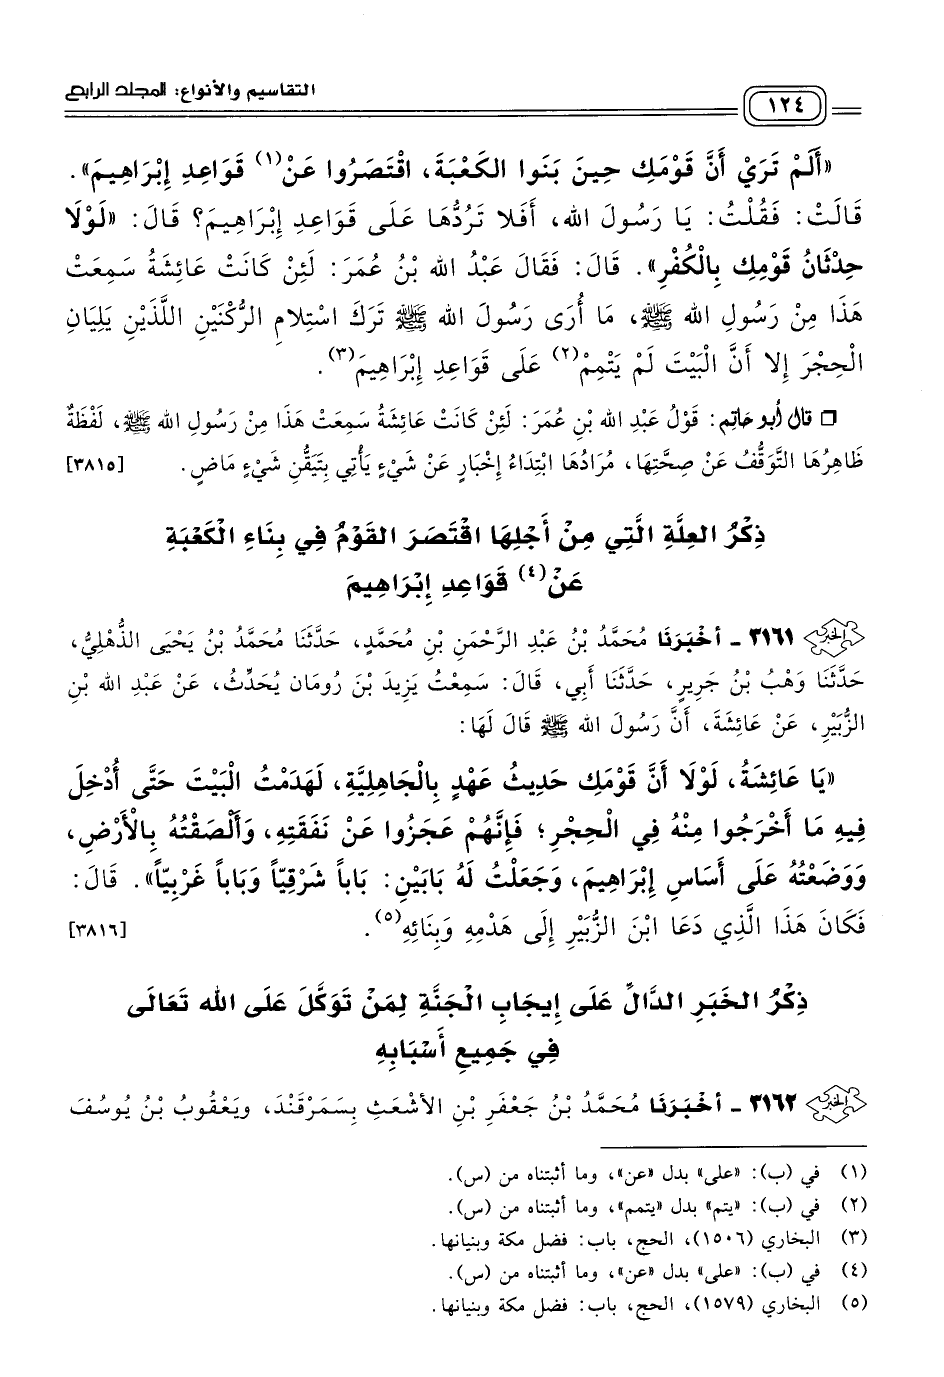 ١٢٤
التقاسيم والأنواع: المجلد الرابع
«أَلَمْ تَرَيْ أَنَّ قَوْمَكِ حِينَ بَنَوا الكَعْبَةَ، اقْتَصَرُوا عَنْ(١) قَوَاعِدِ إِبْرَاهِيمَ».
قَالَتْ: فَقُلْتُ: يَا رَسُولَ الله، أَفَلا تَرُدُّهَا عَلَى قَوَاعِدِ إِبْرَاهِيمَ؟ قَالَ: «لَوْلَا
حِدْثَانُ قَوْمِكِ بِالْكُفْرِ». قَالَ: فَقَالَ عَبْدُ الله بْنُ عُمَرَ: لَئِنْ كَانَتْ عَائِشَةُ سَمِعَتْ
هَذَا مِنْ رَسُولِ الله ﷺ، مَا أُرَى رَسُولَ الله ﷺ تَرَكَ اسْتِلامَ الرُّكْنَيْنِ اللَّذَيْنِ يَلِيَانِ
الْحِجْرَ إِلا أَنَّ الْبَيْتَ لَمْ يَتْمِمْ(٢) عَلَى قَوَاعِدِ إِبْرَاهِيمَ(٣).
□ قال أبو حاتِم: قَوْلُ عَبْدِ الله بْنِ عُمَرَ: لَئِنْ كَانَتْ عَائِشَةُ سَمِعَتْ هَذَا مِنْ رَسُولِ الله ﷺ، لَفْظَةٌ
ظَاهِرُهَا التَّوَقُّفُ عَنْ صِحَّتِهَا، مُرَادُهَا ابْتِدَاءُ إِخْبَارٍ عَنْ شَيْءٍ يَأْتِي بِتَيَقُّنِ شَيْءٍ مَاضٍ. [٣٨١٥]
ذِكْرُ العِلَّةِ الَّتِي مِنْ أَجْلِهَا اقْتَصَرَ القَوْمُ فِي بِنَاءِ الْكَعْبَةِ
عَنْ(٤) قَوَاعِدِ إِبْرَاهِيمَ
الخبر ٣١٦١ ـ أخْبَرَنَا مُحَمَّدُ بْنُ عَبْدِ الرَّحْمَنِ بْنِ مُحَمَّدٍ، حَدَّثَنَا مُحَمَّدُ بْنُ يَحْيَى الذُّهْلِيُّ،
حَدَّثَنَا وَهْبُ بْنُ جَرِيرٍ، حَدَّثَنَا أَبِي، قَالَ: سَمِعْتُ يَزِيدَ بْنَ رُومَانَ يُحَدِّثُ، عَنْ عَبْدِ الله بْنِ
الزُّبَيْرِ، عَنْ عَائِشَةَ، أَنَّ رَسُولَ الله ﷺ قَالَ لَهَا:
«يَا عَائِشَةُ، لَوْلَا أَنَّ قَوْمَكِ حَدِيثُ عَهْدٍ بِالْجَاهِلِيَّةِ، لَهَدَمْتُ الْبَيْتَ حَتَّى أُدْخِلَ
فِيهِ مَا أَخْرَجُوا مِنْهُ فِي الْحِجْرِ؛ فَإِنَّهُمْ عَجَزُوا عَنْ نَفَقَتِهِ، وَأَلْصَقْتُهُ بِالْأَرْضِ،
وَوَضَعْتُهُ عَلَى أَسَاسِ إِبْرَاهِيمَ، وَجَعَلْتُ لَهُ بَابَيْنِ: بَاباً شَرْقِيّاً وَبَاباً غَرْبِيّاً». قَالَ:
فَكَانَ هَذَا الَّذِي دَعَا ابْنَ الزُّبَيْرِ إِلَى هَدْمِهِ وَبِنَائِهِ(٥). [٣٨١٦]
ذِكْرُ الخَبَرِ الدَّالِّ عَلَى إِيجَابِ الْجَنَّةِ لِمَنْ تَوَكَّلَ عَلَى الله تَعَالَى
فِي جَمِيعِ أَسْبَابِهِ
الخبر ٣١٦٢ ـ أخْبَرَنَا مُحَمَّدُ بْنُ جَعْفَرِ بْنِ الأشْعَثِ بِسَمَرْقَنْدَ، ويَعْقُوبُ بْنُ يُوسُفَ
(١) في (ب): «على» بدل «عن»، وما أثبتناه من (س).
(٢) في (ب): «يتم» بدل «يتمم»، وما أثبتناه من (س).
(٣) البخاري (١٥٠٦)، الحج، باب: فضل مكة وبنيانها.
(٤) في (ب): «على» بدل «عن»، وما أثبتناه من (س).
(٥) البخاري (١٥٧٩)، الحج، باب: فضل مكة وبنيانها.